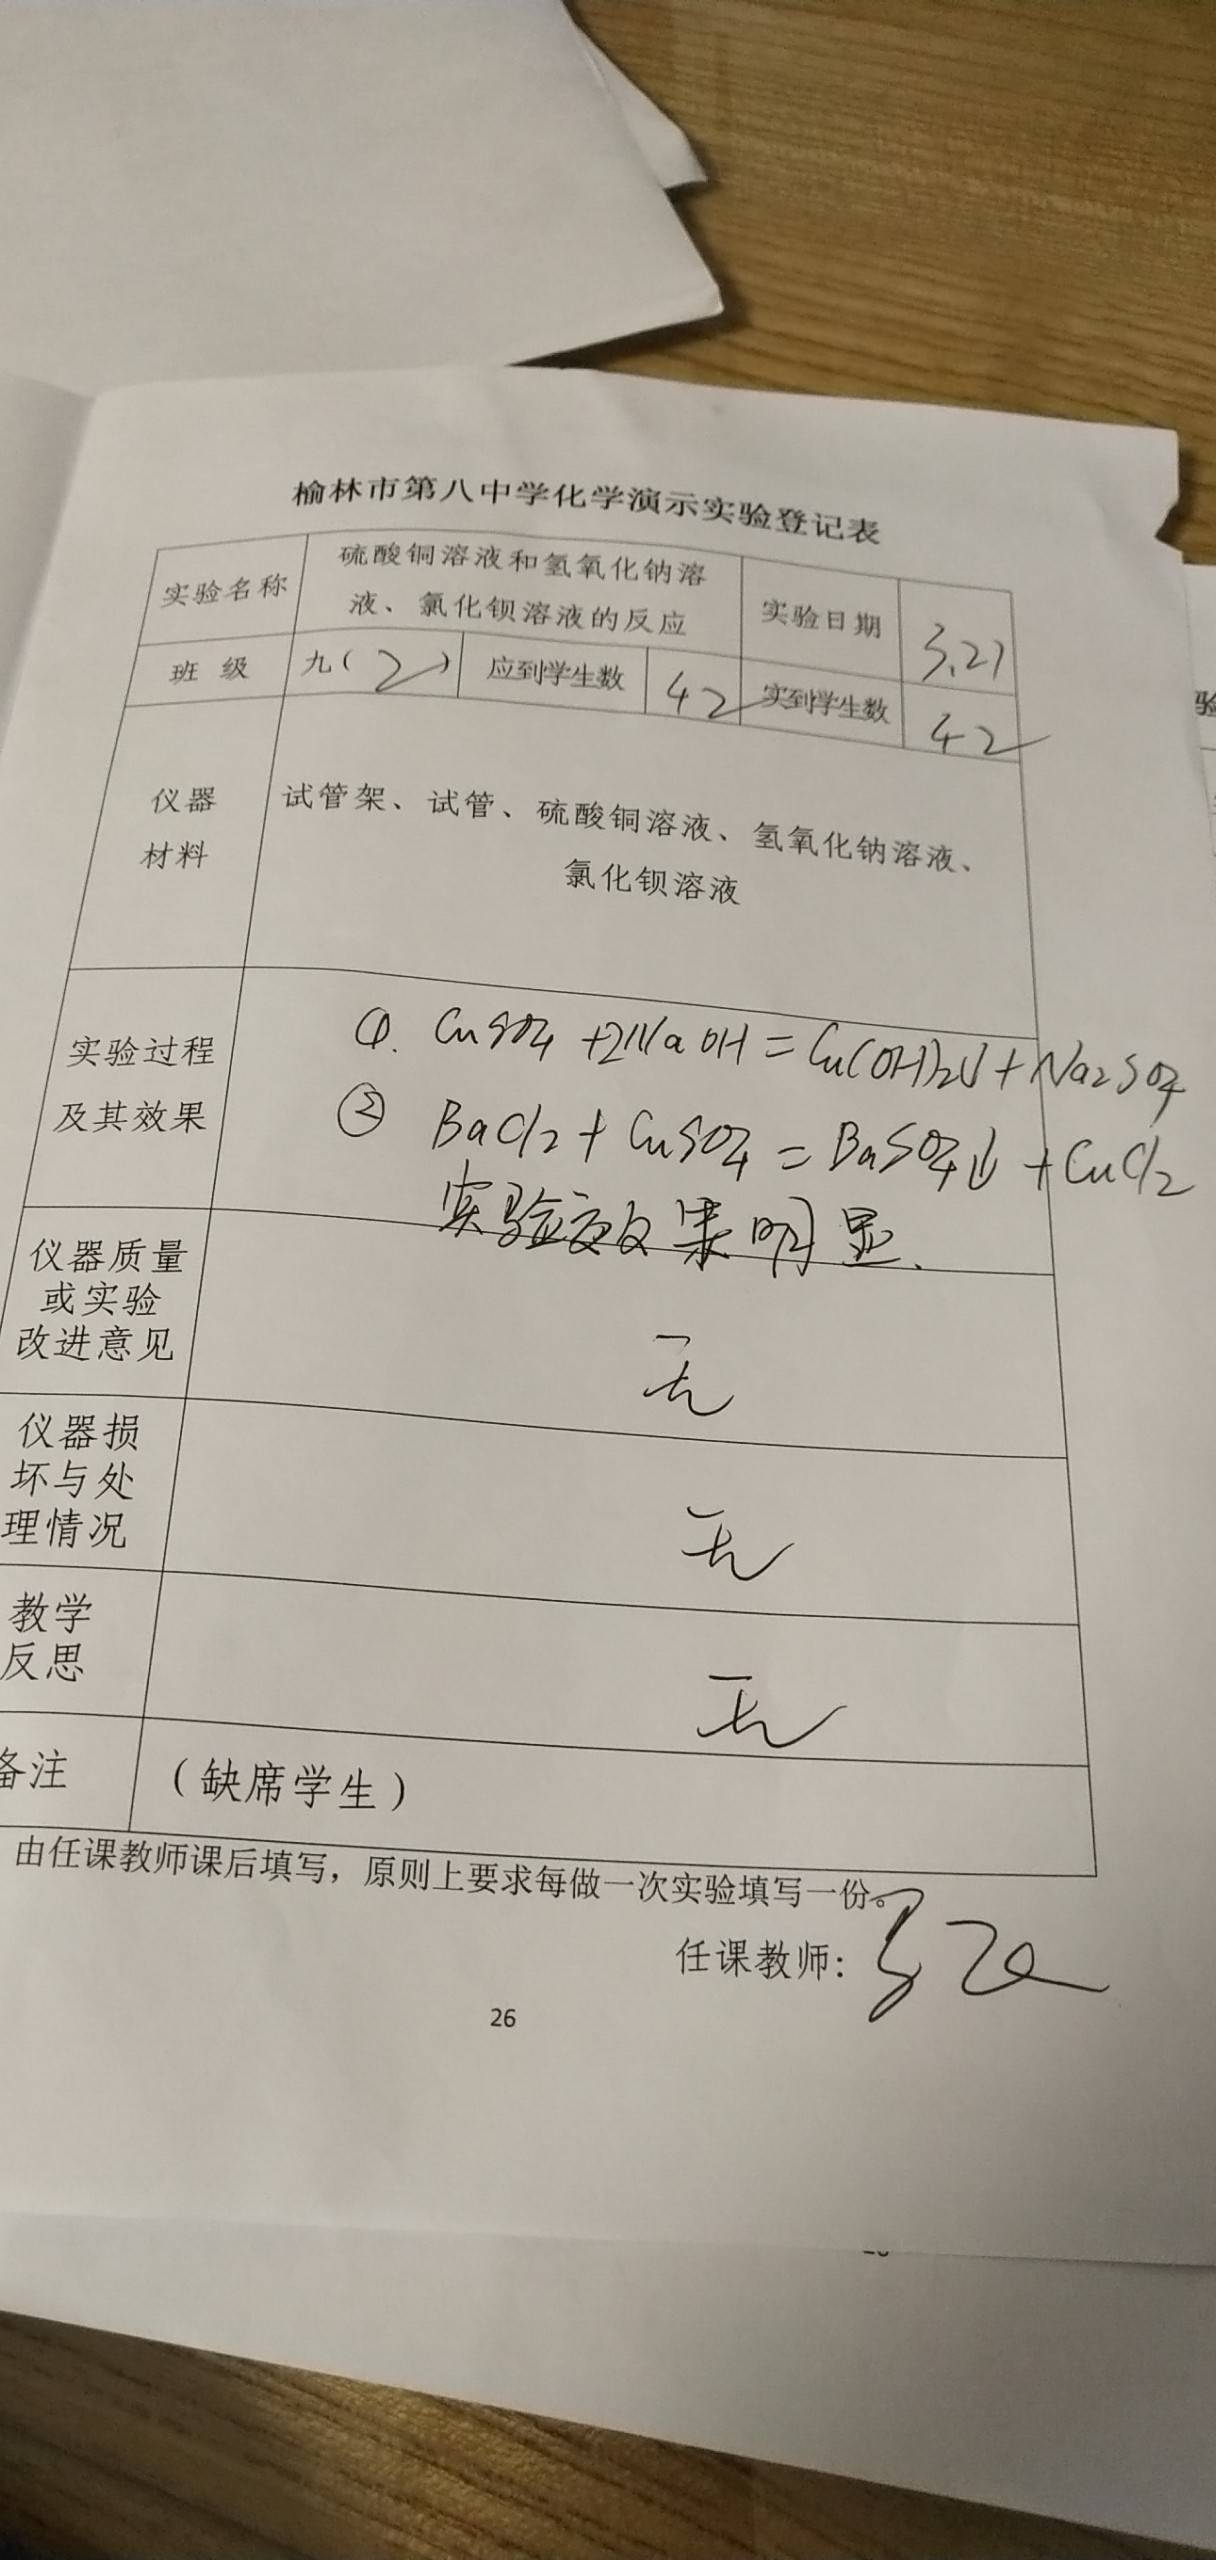 榆林市第八中学化学演示实验登记表
实验名称
硫酸铜溶液和氢氧化钠溶
液、氯化钡溶液的反应
实验日期
3.21
班 级
九(2)
应到学生数
42
实到学生数
42
仪器
材料
试管架、试管、硫酸铜溶液、氢氧化钠溶液、
氯化钡溶液
实验过程
及其效果
①. CuSO4 +2NaOH = Cu(OH)2↓ + Na2SO4
② BaCl2 + CuSO4 = BaSO4↓ + CuCl2
实验效果明显.
仪器质量
或实验
改进意见
无
仪器损
坏与处
理情况
无
教学
反思
无
备注
(缺席学生)
由任课教师课后填写，原则上要求每做一次实验填写一份。
任课教师:
26
验